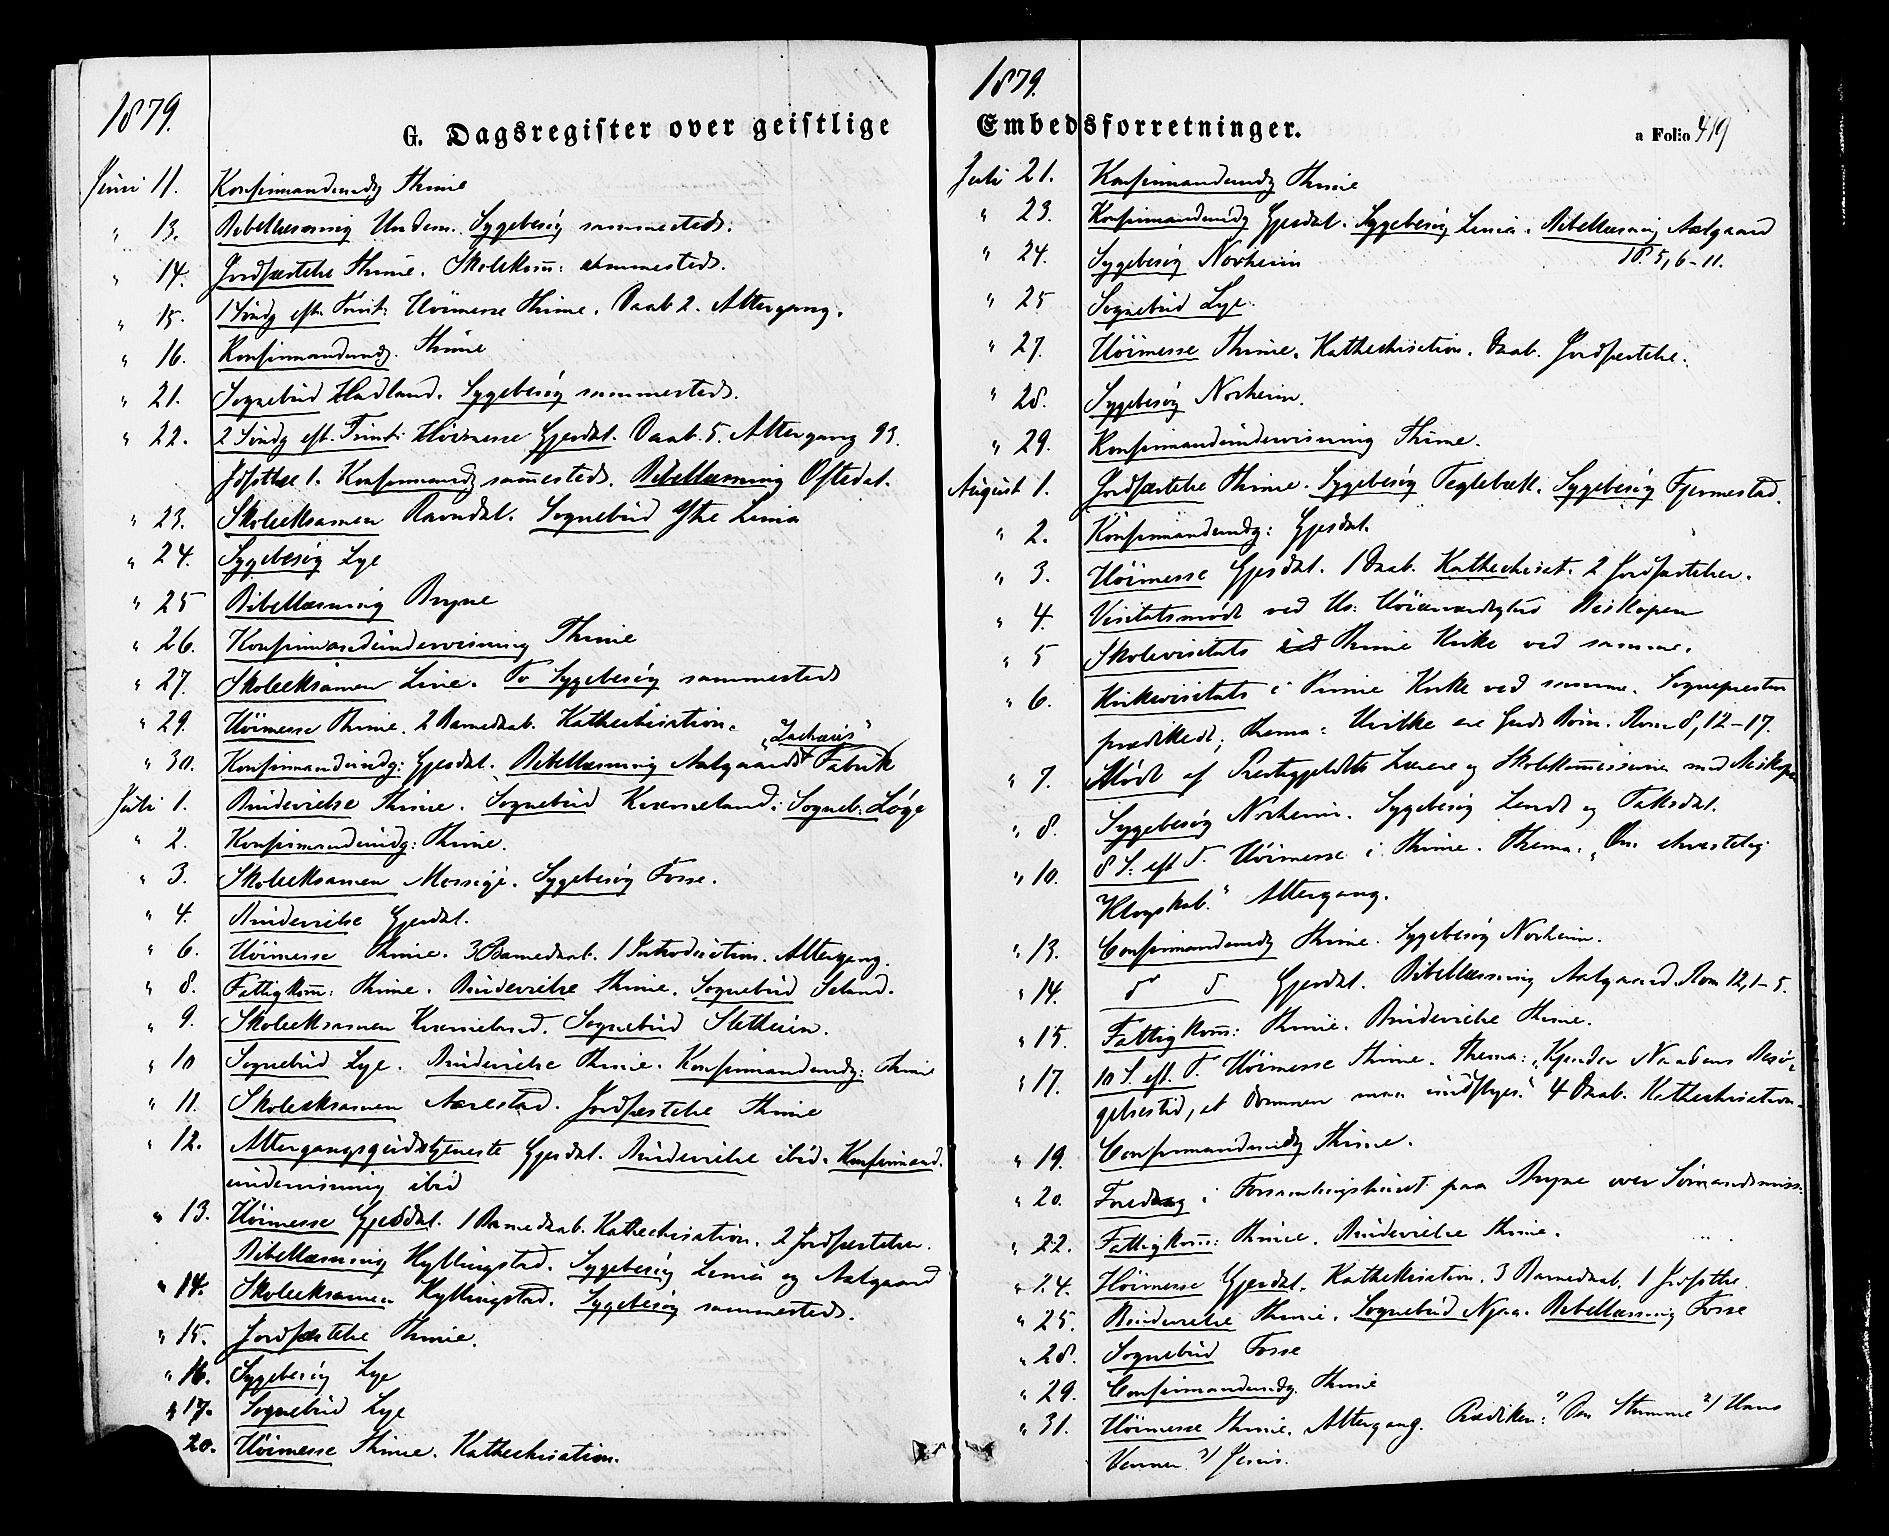 1879.
G. Dagsregister over geistlige
Juni 11. Konfirmandundg Thime
" 13. Bibellæsning Undem. Sygebesög sammesteds.
" 14. Jordfæstelse Thime. Skolekom: sammesteds.
" 15. 1 Söndg eft. Trinit: Höimesse Thime. Daab 2. Altergang.
" 16. Konfirmandundg. Thime
" 21. Sognebud Hadland. Sygebesög sammesteds.
" 22. 2 Söndg eft. Trinit: Höimesse Gjesdal. Daab 5. Altergang 93.
Jdfsttlse 1. Konfirmandg sammesteds. Bibellæsning Oftedal.
" 23. Skoleeksamen Ravndal. Sognebud Limia
" 24. Sygebesög Lye
" 25 Bibellæsning Bryne
" 26. Konfirmandundervisning Thime
" 27. Skoleeksamen Line. To Sygebesög sammesteds
" 29. Höimesse Thime. 2 Barnedaab. Kathechisation.
"Zachæus"
" 30. Konfirmandundg: Gjesdal. Bibellæsning Aalgaards Fabrik
Juli 1. Brudevielse Thime. Sognebud Kverneland. Sogneb. Löge
" 2. Konfirmandundg: Thime.
" 3. Skoleeksamen Mossige. Sygebesög Fosse.
" 4. Brudevielse Gjesdal.
" 6. Höimesse Thime. 3 Barnedaab. 1 Introduction. Altergang.
" 8. Fattigkom: Thime. Brudevielse Thime. Sognebud Seland.
" 9. Skoleeksamen Kverneland. Sognebud Sletheien.
" 10 Sognebud Lye. Brudevielse Thime. Konfirmandundg: Thime
" 11. Skoleeksamen Aarestad. Jordfæstelse Thime
" 12. Altergangsgudstjeneste Gjesdal. Brudevielse ibid. Konfirmand.
undervisning ibid
" 13. Höimesse Gjesdal. 1 Barnedaab. Kathechisation. 2 Jordfæstelser.
Bibellæsning Kyllingstad. Sygebesög Limia og Aalgaard
" 14. Skoleeksamen Kyllingstad. Sygebesög sammesteds.
" 15. Jordfæstelse Thime.
" 16. Sygebesög Lye
" 17. Sognebud Lye
20. Höimesse Thime. Kathechisation.
1879.
Embedsforretninger.
a Folio 419
Juli 21. Konfirmandundg Thime
" 23. Konfirmandundg Gjesdal. Sygebesög Limia. Bibellæsning Aalgaard
5, 6-11.
" 24. Sygebesög Norheim
" 25 Sognebud Lye.
" 27. Höimesse Thime. Kathechisation. Daab. Jordfæstelse.
" 28. Sygebesög Norheim.
" 29. Konfirmandundervisning Thime.
August 1. Jordfæstelse Thime. Sygebesög Teglebæk. Sygebesög Fjermestad.
" 2. Konfirmandundg: Gjesdal.
" 3. Höimesse Gjesdal. 1 Daab. Kathechisat. 2 Jordfæstelser.
" 4. Visitatsmöde ved Hs: Höiærværdighed Biskopen
" 5 Skolevisitats i Thime Kirke ved samme.
" 6. Kirkevisitats i Thime Kirke ved samme. Sognepresten
prædikede; Thema: Hvilke ere Guds Börn. Rom 8, 12-17.
" 7. Möde af Prestegjeldets Lærere og Skolekommissioner med Biskopen
" 8. Sygebesög Norheim. Sygebesög Lende og Taksdal.
" 10. 8 S: eft T. Höimesse i Thime. Thema: "Om christelig
Klogskab." Altergang.
" 13. Confirmandundg Thime. Sygebesög Norheim.
" 14. do do Gjesdal. Bibellæsning Aalgaard. Rom 12, 1-5.
" 15. Fattigkom: Thime. Brudevielse Thime.
" 17. 10 S. eft. T. Höimesse Thime. Thema: "Kjender Naadens Besö-
gelsestid, at Dommen maa undflyes." 4 Daab. Kathechisation.
" 19. Confirmandundg Thime.
" 20. Foredrag i Forsamlingshuset paa Bryne over Sömandsmiss:
" 22. Fattigkom: Thime. Brudevielse Thime.
" 24. Höimesse Gjesdal. Kathechisation. 3 Barnedaab. 1 Jrdfsttlse.
" 25. Brudevielse Thime. Sognebud Njaa. Bibellæsning Fosse
" 28. Sognebud Fosse
" 29. Confirmandundg. Thime
" 31. Höimesse Thime. Altergang. Prædiken: 1) Den Stumme 2) Hans
Venner 3) Jesus.